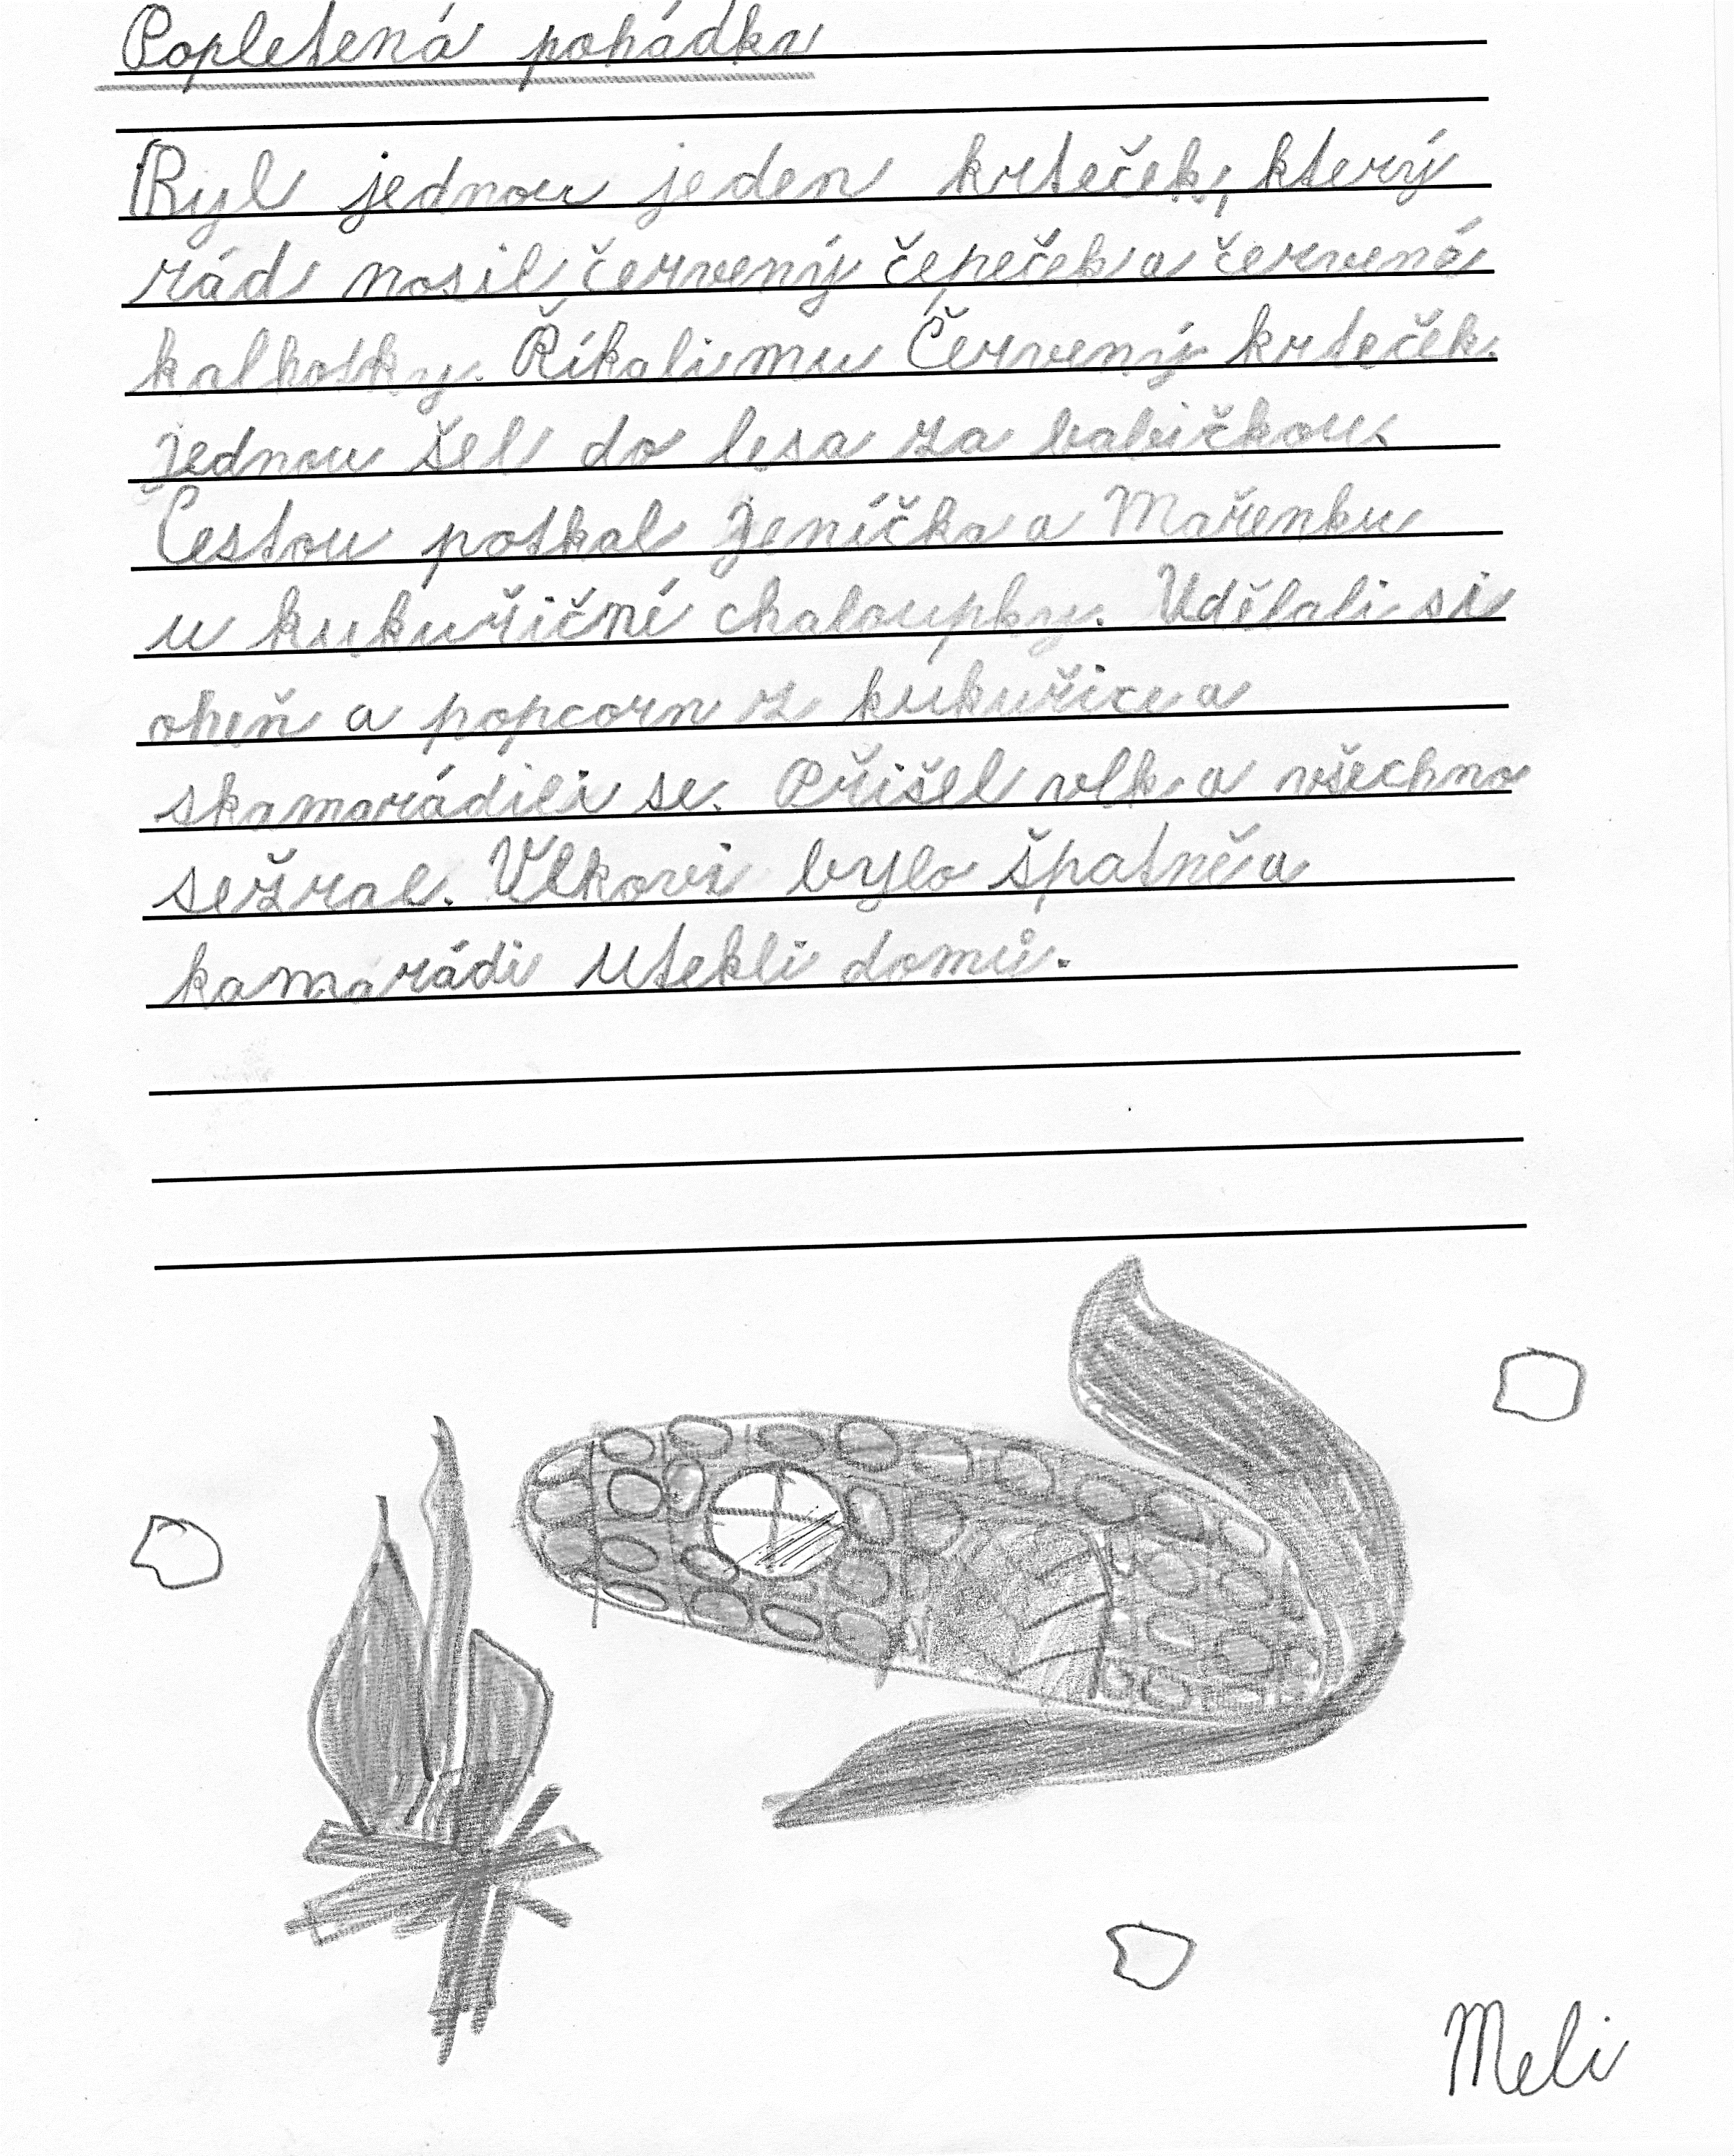 Popletená pohádka
Ryl jednou jeden krteček, který
rád nosil červený čepeček a červené
kalhotky. Říkali mu Červený krteček.
Jednou šel do lesa za babičkou.
Cestou potkal Jeníčka a Mařenku
u kukuřičné chaloupky. Udělali si
oheň a popcorn z kukuřice a
skamarádili se. Přišel vlk a všechno
sežral. Vlkovi bylo špatně a
kamarádi utekli domů.
Meli